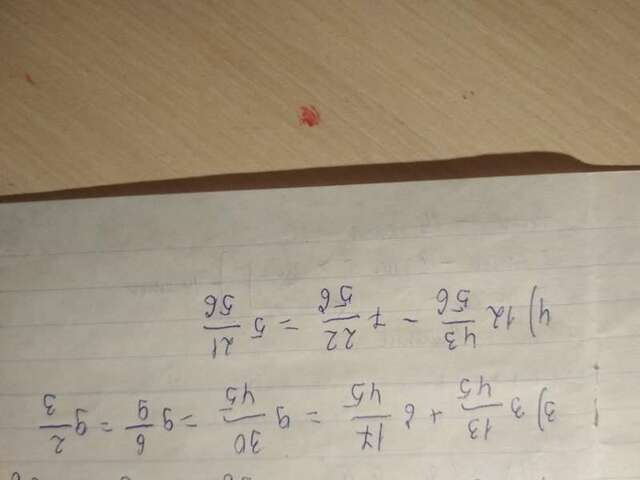 3) 3 13/45 + 6 17/45 = 9 30/45 = 9 6/9 = 9 2/3
4) 12 43/56 - 7 22/56 = 5 21/56